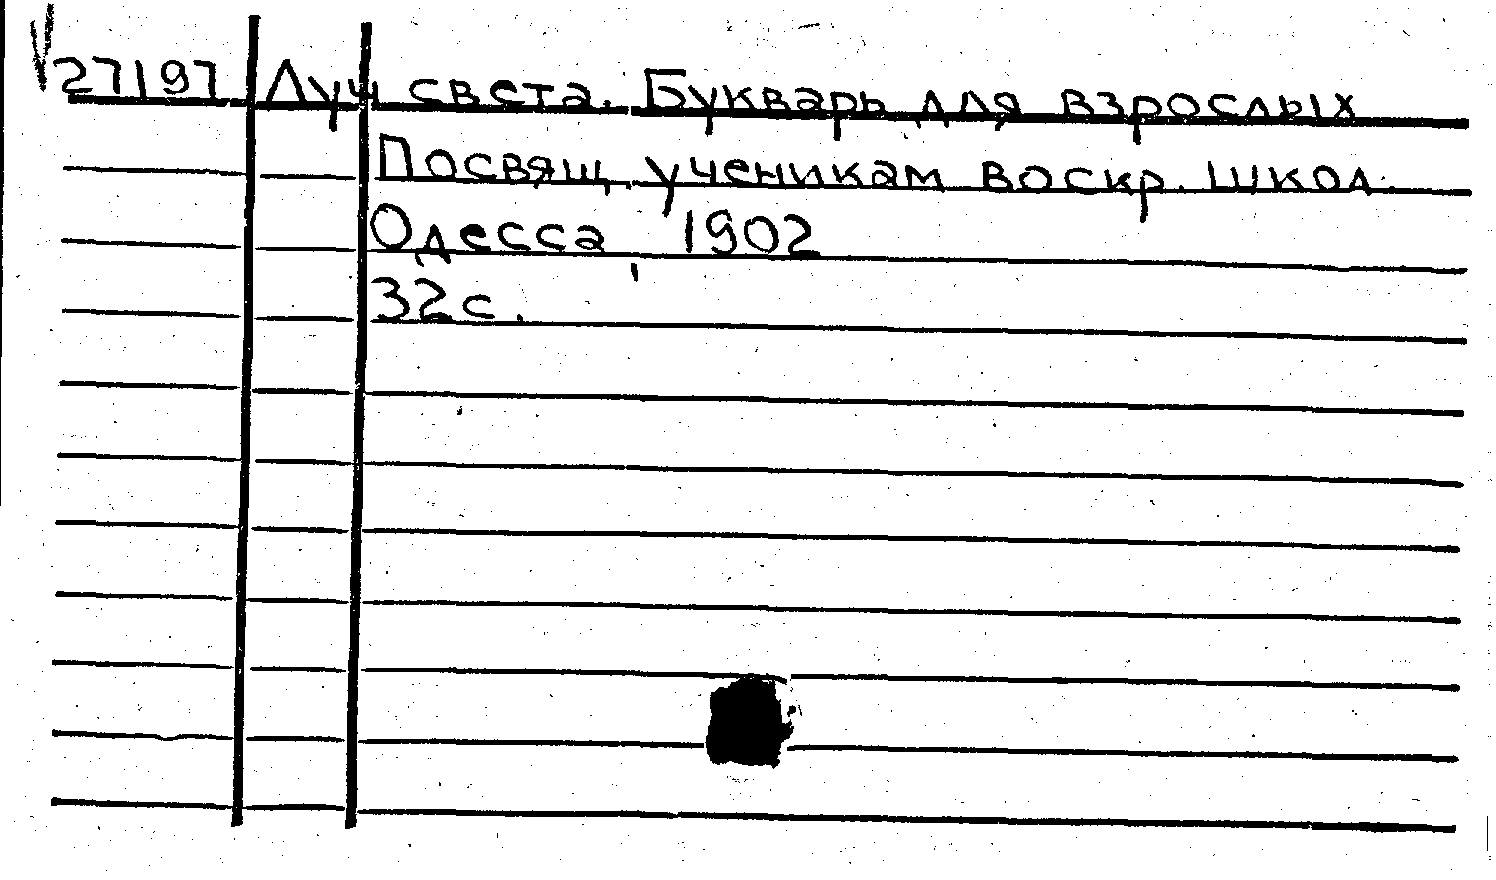 27197 Луч света. Букварь для взрослых
Посвящ. ученикам воскр. школ.
Одесса, 1902
32с.